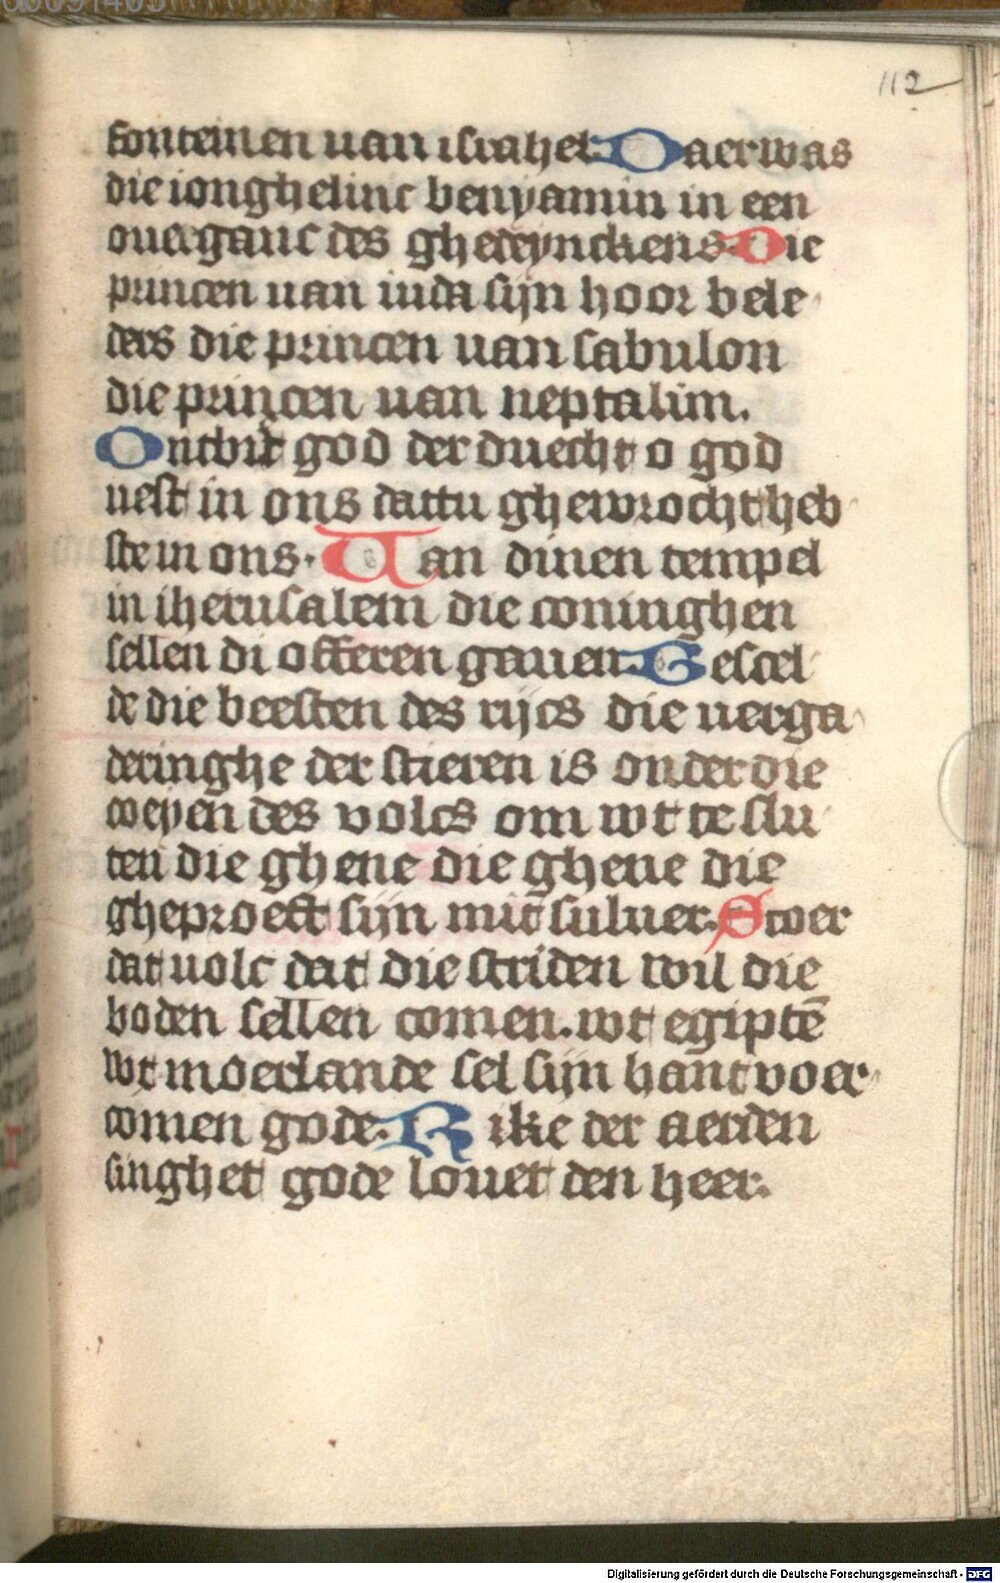 112
fonteinen uan israhel. Daer was
die ionghelinc benyamin in een
ouergauc des ghedeynckens. Die
princen uan iuda sijn hoor bele
ders die princen uan sabulon
die princen uan neptalim.
Ontbit god der duecht o god
uest in ons dattu ghewrocht heb
ste in ons. Uan dinen tempel
in iherusalem die coninghen
sellen di offeren gauen. Gescel
de die beesten des rijcs die uerga
deringhe der stieren is onder die
coeyen des volcs om wt te slu
ten die ghene die ghene die
gheproeft sijn mit suluer. Stoer
dat uolc dat die striden wil die
boden sellen comen. wt egiptē
wt moerlande sel sijn hant voer
comen gode. Rike der aerden
singhet gode louet den heer.
Digitalisierung gefördert durch die Deutsche Forschungsgemeinschaft - DFG